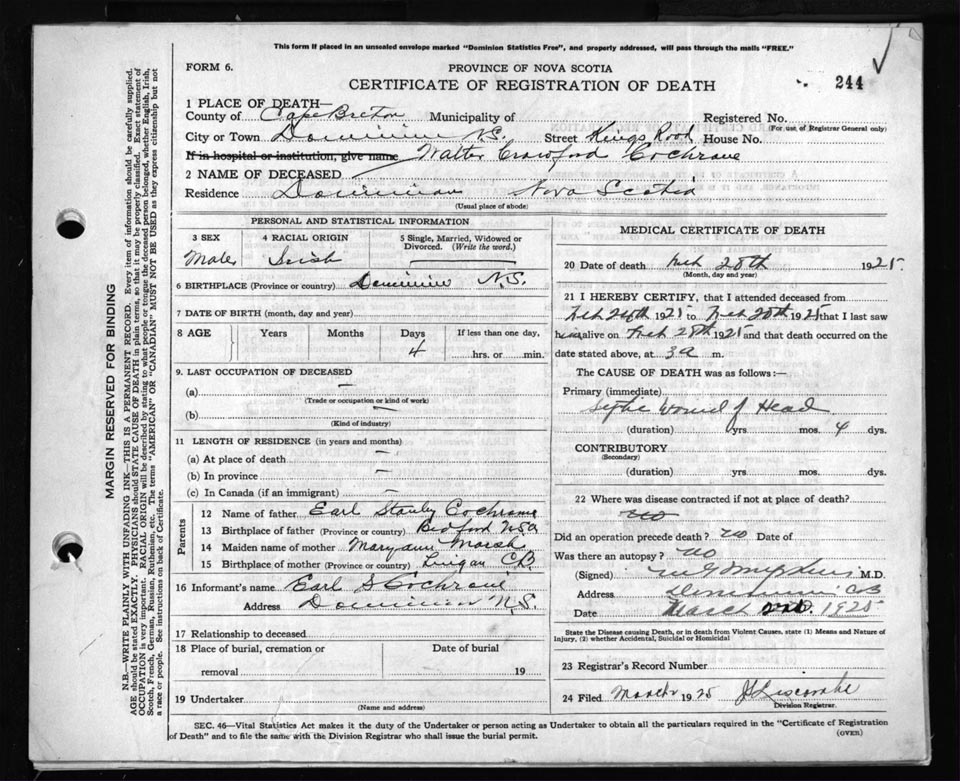 This form if placed in an unsealed envelope marked "Dominion Statistics Free", and properly addressed, will pass through the mails "FREE."
FORM 6.
PROVINCE OF NOVA SCOTIA
CERTIFICATE OF REGISTRATION OF DEATH
244
1 PLACE OF DEATH—
County of Cape Breton Municipality of Registered No.
(For use of Registrar General only)
City or Town Dominion N.S. Street Kings Road House No.
If in hospital or institution, give name Walter Crawford Cochrane
2 NAME OF DECEASED
Residence Dominion Nova Scotia
(Usual place of abode)
PERSONAL AND STATISTICAL INFORMATION
3 SEX 4 RACIAL ORIGIN 5 Single, Married, Widowed or Divorced. (Write the word.)
Male Irish
6 BIRTHPLACE (Province or country) Dominion N.S.
7 DATE OF BIRTH (month, day and year)
8 AGE Years Months Days If less than one day.
4 hrs. or min.
9. LAST OCCUPATION OF DECEASED
(a) —
(Trade or occupation or kind of work)
(b) —
(Kind of industry)
11 LENGTH OF RESIDENCE (in years and months)
(a) At place of death —
(b) In province —
(c) In Canada (if an immigrant) —
Parents
12 Name of father Earl Stanley Cochrane
13 Birthplace of father (Province or country) Bedford
14 Maiden name of mother Maryann Marsh
15 Birthplace of mother (Province or country) Lingan C.B.
16 Informant's name Earl S Cochrane
Address Dominion N.S.
17 Relationship to deceased
18 Place of burial, cremation or removal Date of burial
19
19 Undertaker
(Name and address)
MEDICAL CERTIFICATE OF DEATH
20 Date of death Feb 28th 1925
(Month, day and year)
21 I HEREBY CERTIFY, that I attended deceased from
Feb 1925 to Feb 28th 1925 that I last saw
him alive on Feb 28th 1925 and that death occurred on the
date stated above, at 3 a m.
The CAUSE OF DEATH was as follows:—
Primary (immediate)
Septic Wound of Head
(duration) yrs. mos. 4 dys.
CONTRIBUTORY
(Secondary)
(duration) yrs. mos. dys.
22 Where was disease contracted if not at place of death?
no
Did an operation precede death? no Date of
Was there an autopsy? no
(Signed) M.D.
Address Dominion CB
Date March 1925
State the Disease causing Death, or in death from Violent Causes, state (1) Means and Nature of Injury, (2) whether Accidental, Suicidal or Homicidal
23 Registrar's Record Number
24 Filed March 1925
Division Registrar.
SEC. 46—Vital Statistics Act makes it the duty of the Undertaker or person acting as Undertaker to obtain all the particulars required in the "Certificate of Registration of Death" and to file the same with the Division Registrar who shall issue the burial permit.
(OVER)
MARGIN RESERVED FOR BINDING
N.B.—WRITE PLAINLY WITH UNFADING INK—THIS IS A PERMANENT RECORD. Every item of information should be carefully supplied.
AGE should be stated EXACTLY. PHYSICIANS should STATE CAUSE OF DEATH in plain terms, so that it may be properly classified. Exact statement of
OCCUPATION is very important. RACIAL ORIGIN will be described by stating to what people or tongue the deceased person belonged, whether English, Irish,
Scotch, French, German, Russian, Ruthenian, etc. The terms "AMERICAN" OR "CANADIAN" MUST NOT BE USED as they express citizenship but not
a race or people. See instructions on back of Certificate.